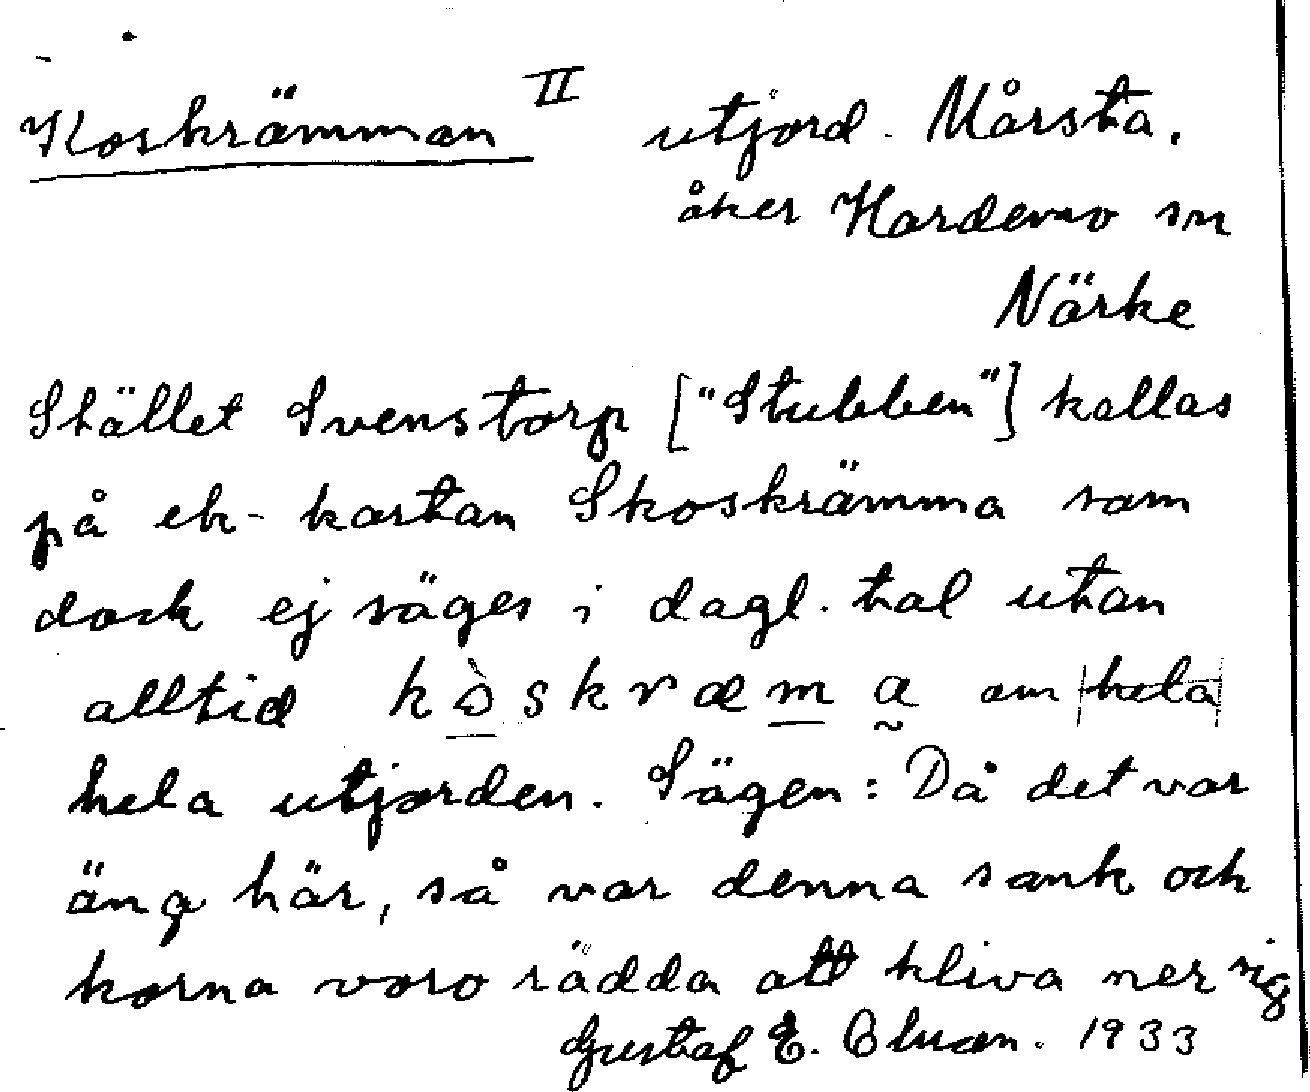 Koskrämman II utjord. Mårsta.
åker Hardemo sn
Närke
Stället Svenstorp ["Stubben"] kallas
på ek-kartan Skoskrämma som
dock ej säges i dagl. tal utan
alltid kòskræma om hela
hela utjorden. Sägen: Då det var
äng här, så var denna sank och
korna voro rädda att kliva ner sig
Gustaf E. 1933